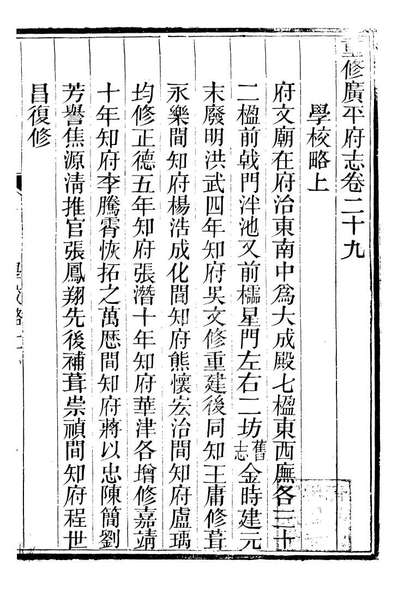 重修廣平府志卷二十九
學校略上
府文廟在府治東南中爲大成殿七楹東西廡各三十
二楹前戟門泮池又前櫺星門左右二坊舊志金時建元
末廢明洪武四年知府吳文修重建後同知王庸修葺
永樂間知府楊浩成化間知府熊懷宏治間知府盧瑀
均修正德五年知府張潛十年知府華津各增修嘉靖
十年知府李騰霄恢拓之萬歷間知府蔣以忠陳簡劉
芳譽焦源清推官張鳳翔先後補葺崇禎間知府程世
昌復修